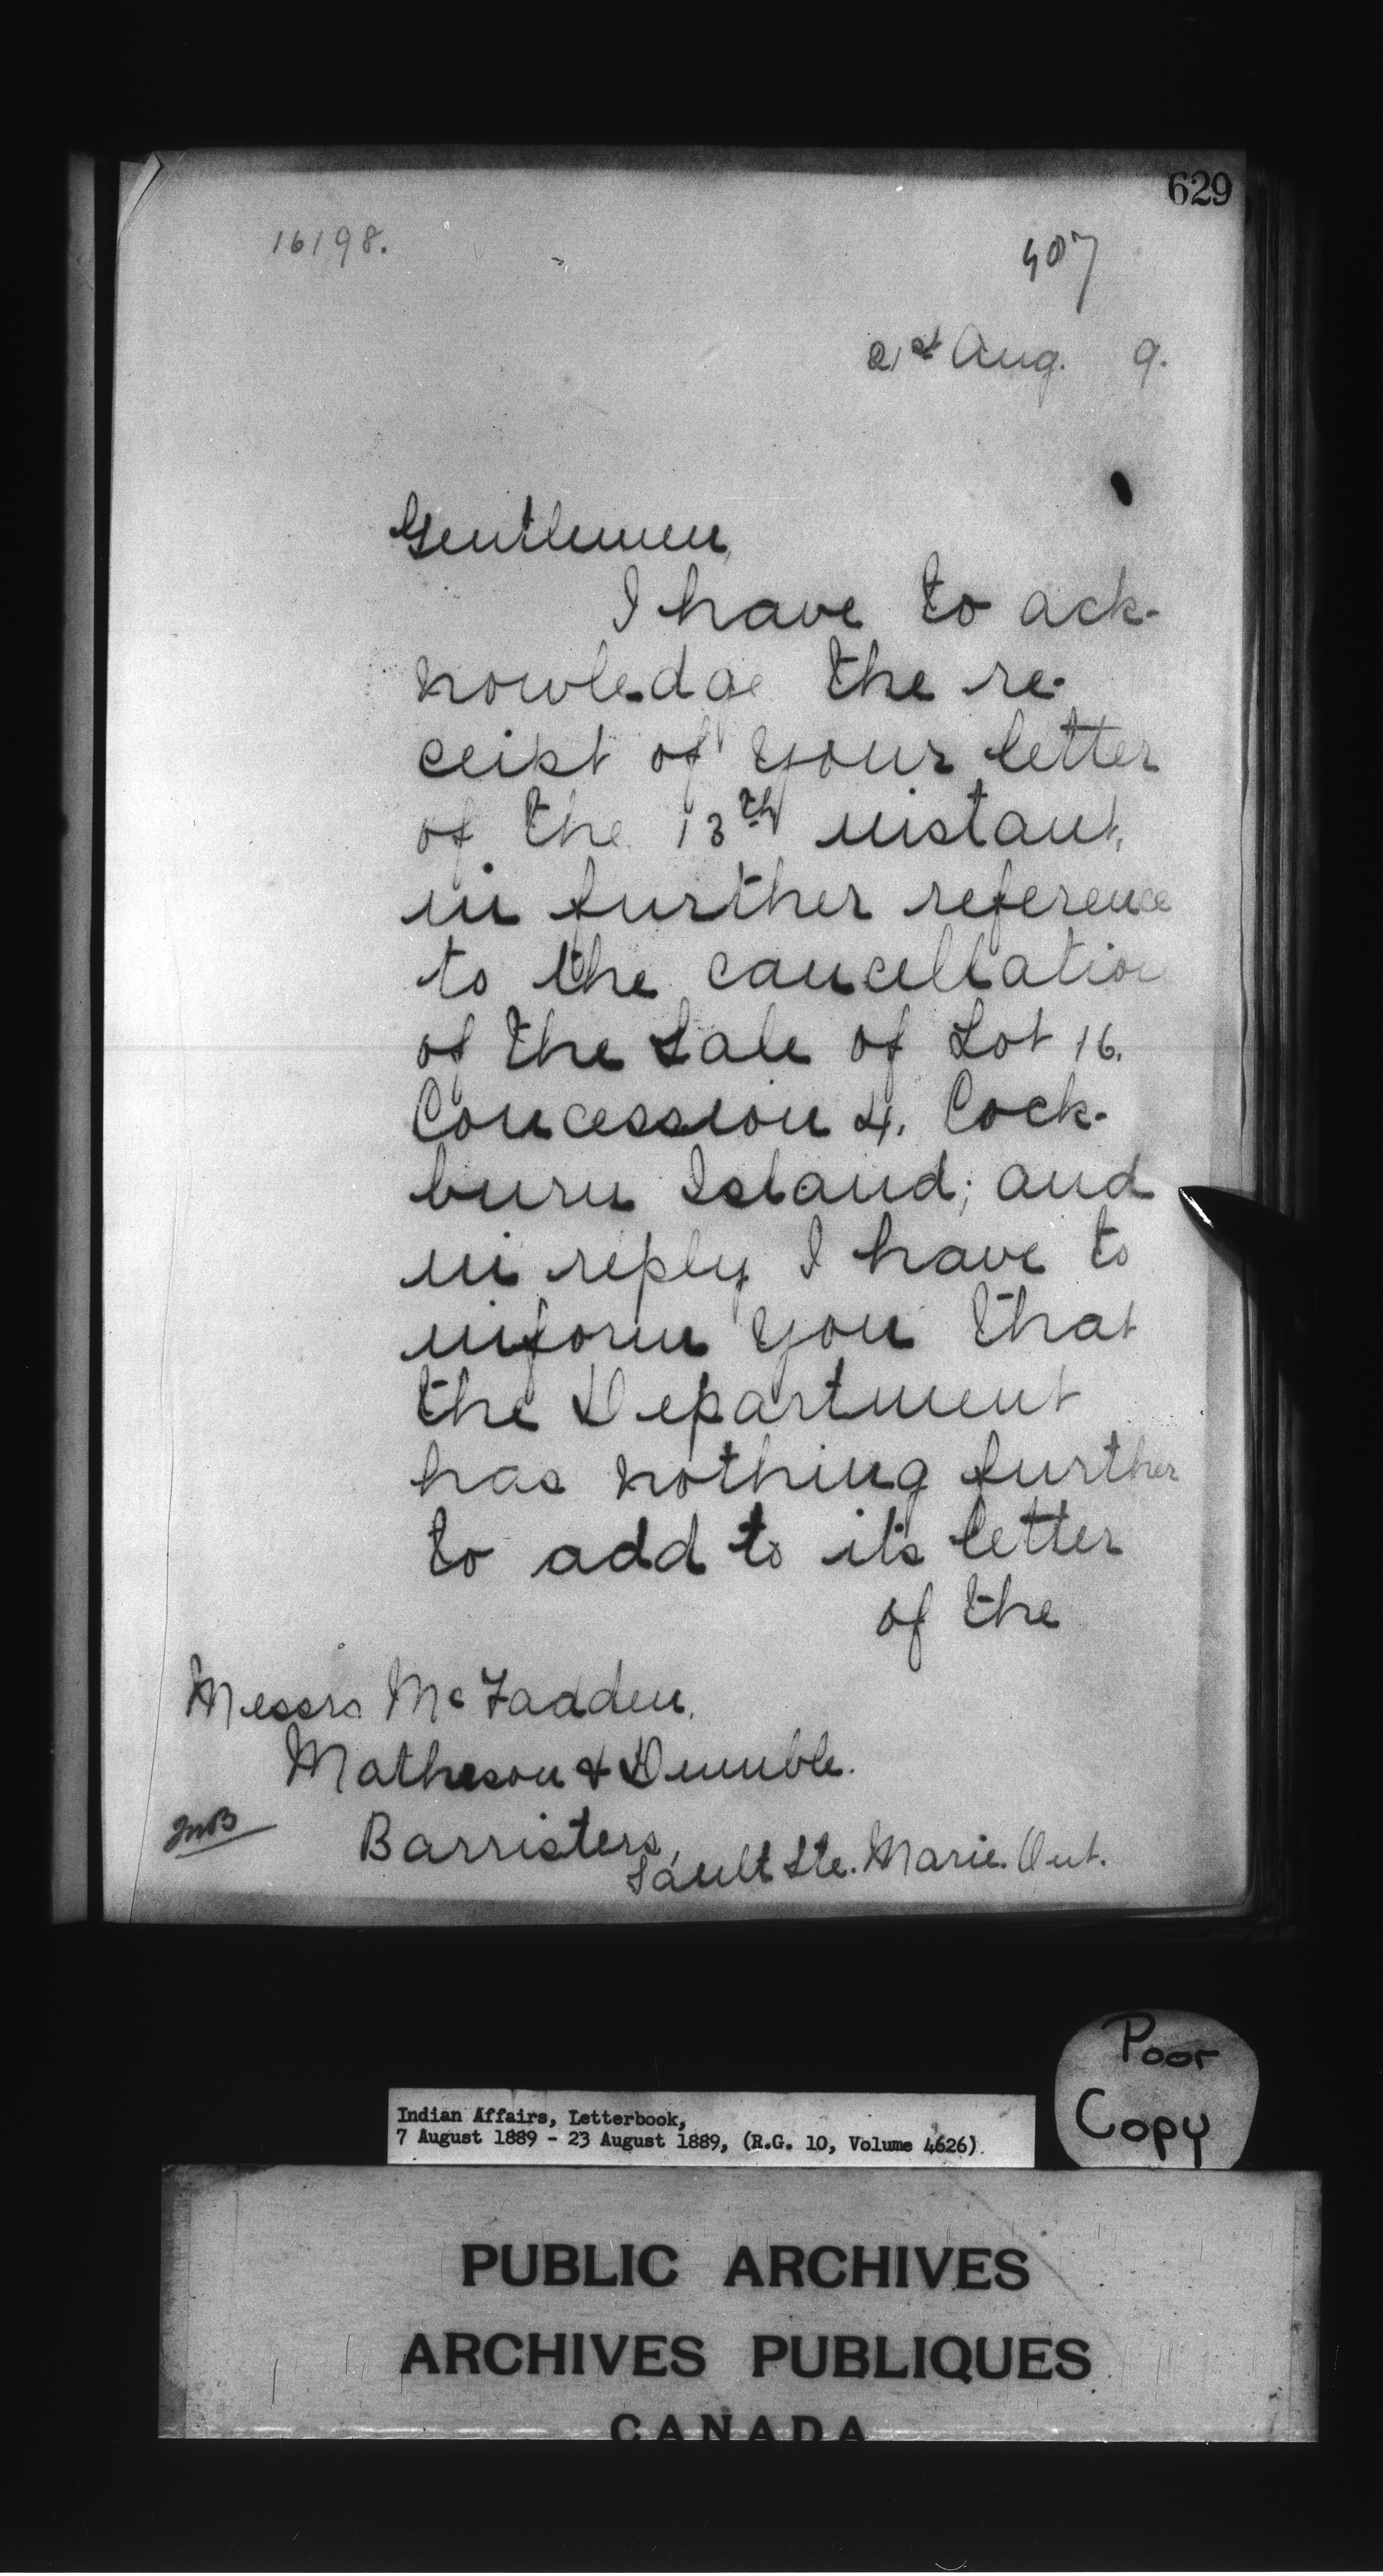 629
16198.
407
21st Aug. 9.
Gentlemen,
I have to ack-
nowledge the re-
ceipt of your letter
of the 13th instant,
in further reference
to the cancellation
of the Sale of Lot 16.
Concession 4. Cock-
burn Island; and
in reply I have to
inform you that
the Department
has nothing further
to add to its letter
of the
Messrs McFadden,
Matheson & Dumble.
Barristers,
Sault Ste. Marie. Ont.
Poor
Copy
Indian Affairs, Letterbook,
7 August 1889 - 23 August 1889, (R.G. 10, Volume 4626)
PUBLIC ARCHIVES
ARCHIVES PUBLIQUES
CANADA